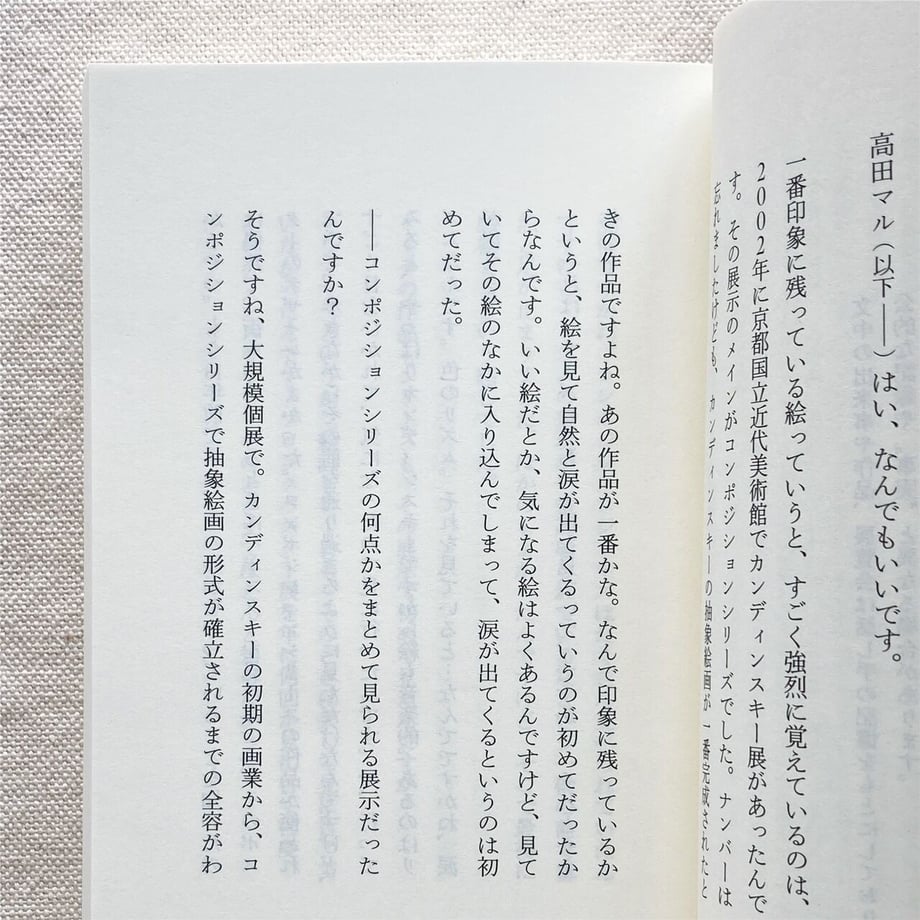 高田マル（以下――）はい、なんでもいいです。
一番印象に残っている絵っていうと、すごく強烈に覚えているのは、
2002年に京都国立近代美術館でカンディンスキー展があったんで
す。その展示のメインがコンポジションシリーズでした。ナンバーは
忘れましたけども、カンディンスキーの抽象絵画が一番完成されたと
きの作品ですよね。あの作品が一番かな。なんで印象に残っているか
というと、絵を見て自然と涙が出てくるっていうのが初めてだったか
らなんです。いい絵だとか、気になる絵はよくあるんですけど、見て
いてその絵のなかに入り込んでしまって、涙が出てくるというのは初
めてだった。
――コンポジションシリーズの何点かをまとめて見られる展示だった
んですか？
そうですね、大規模個展で。カンディンスキーの初期の画業から、コ
ンポジションシリーズで抽象絵画の形式が確立されるまでの全容がわ